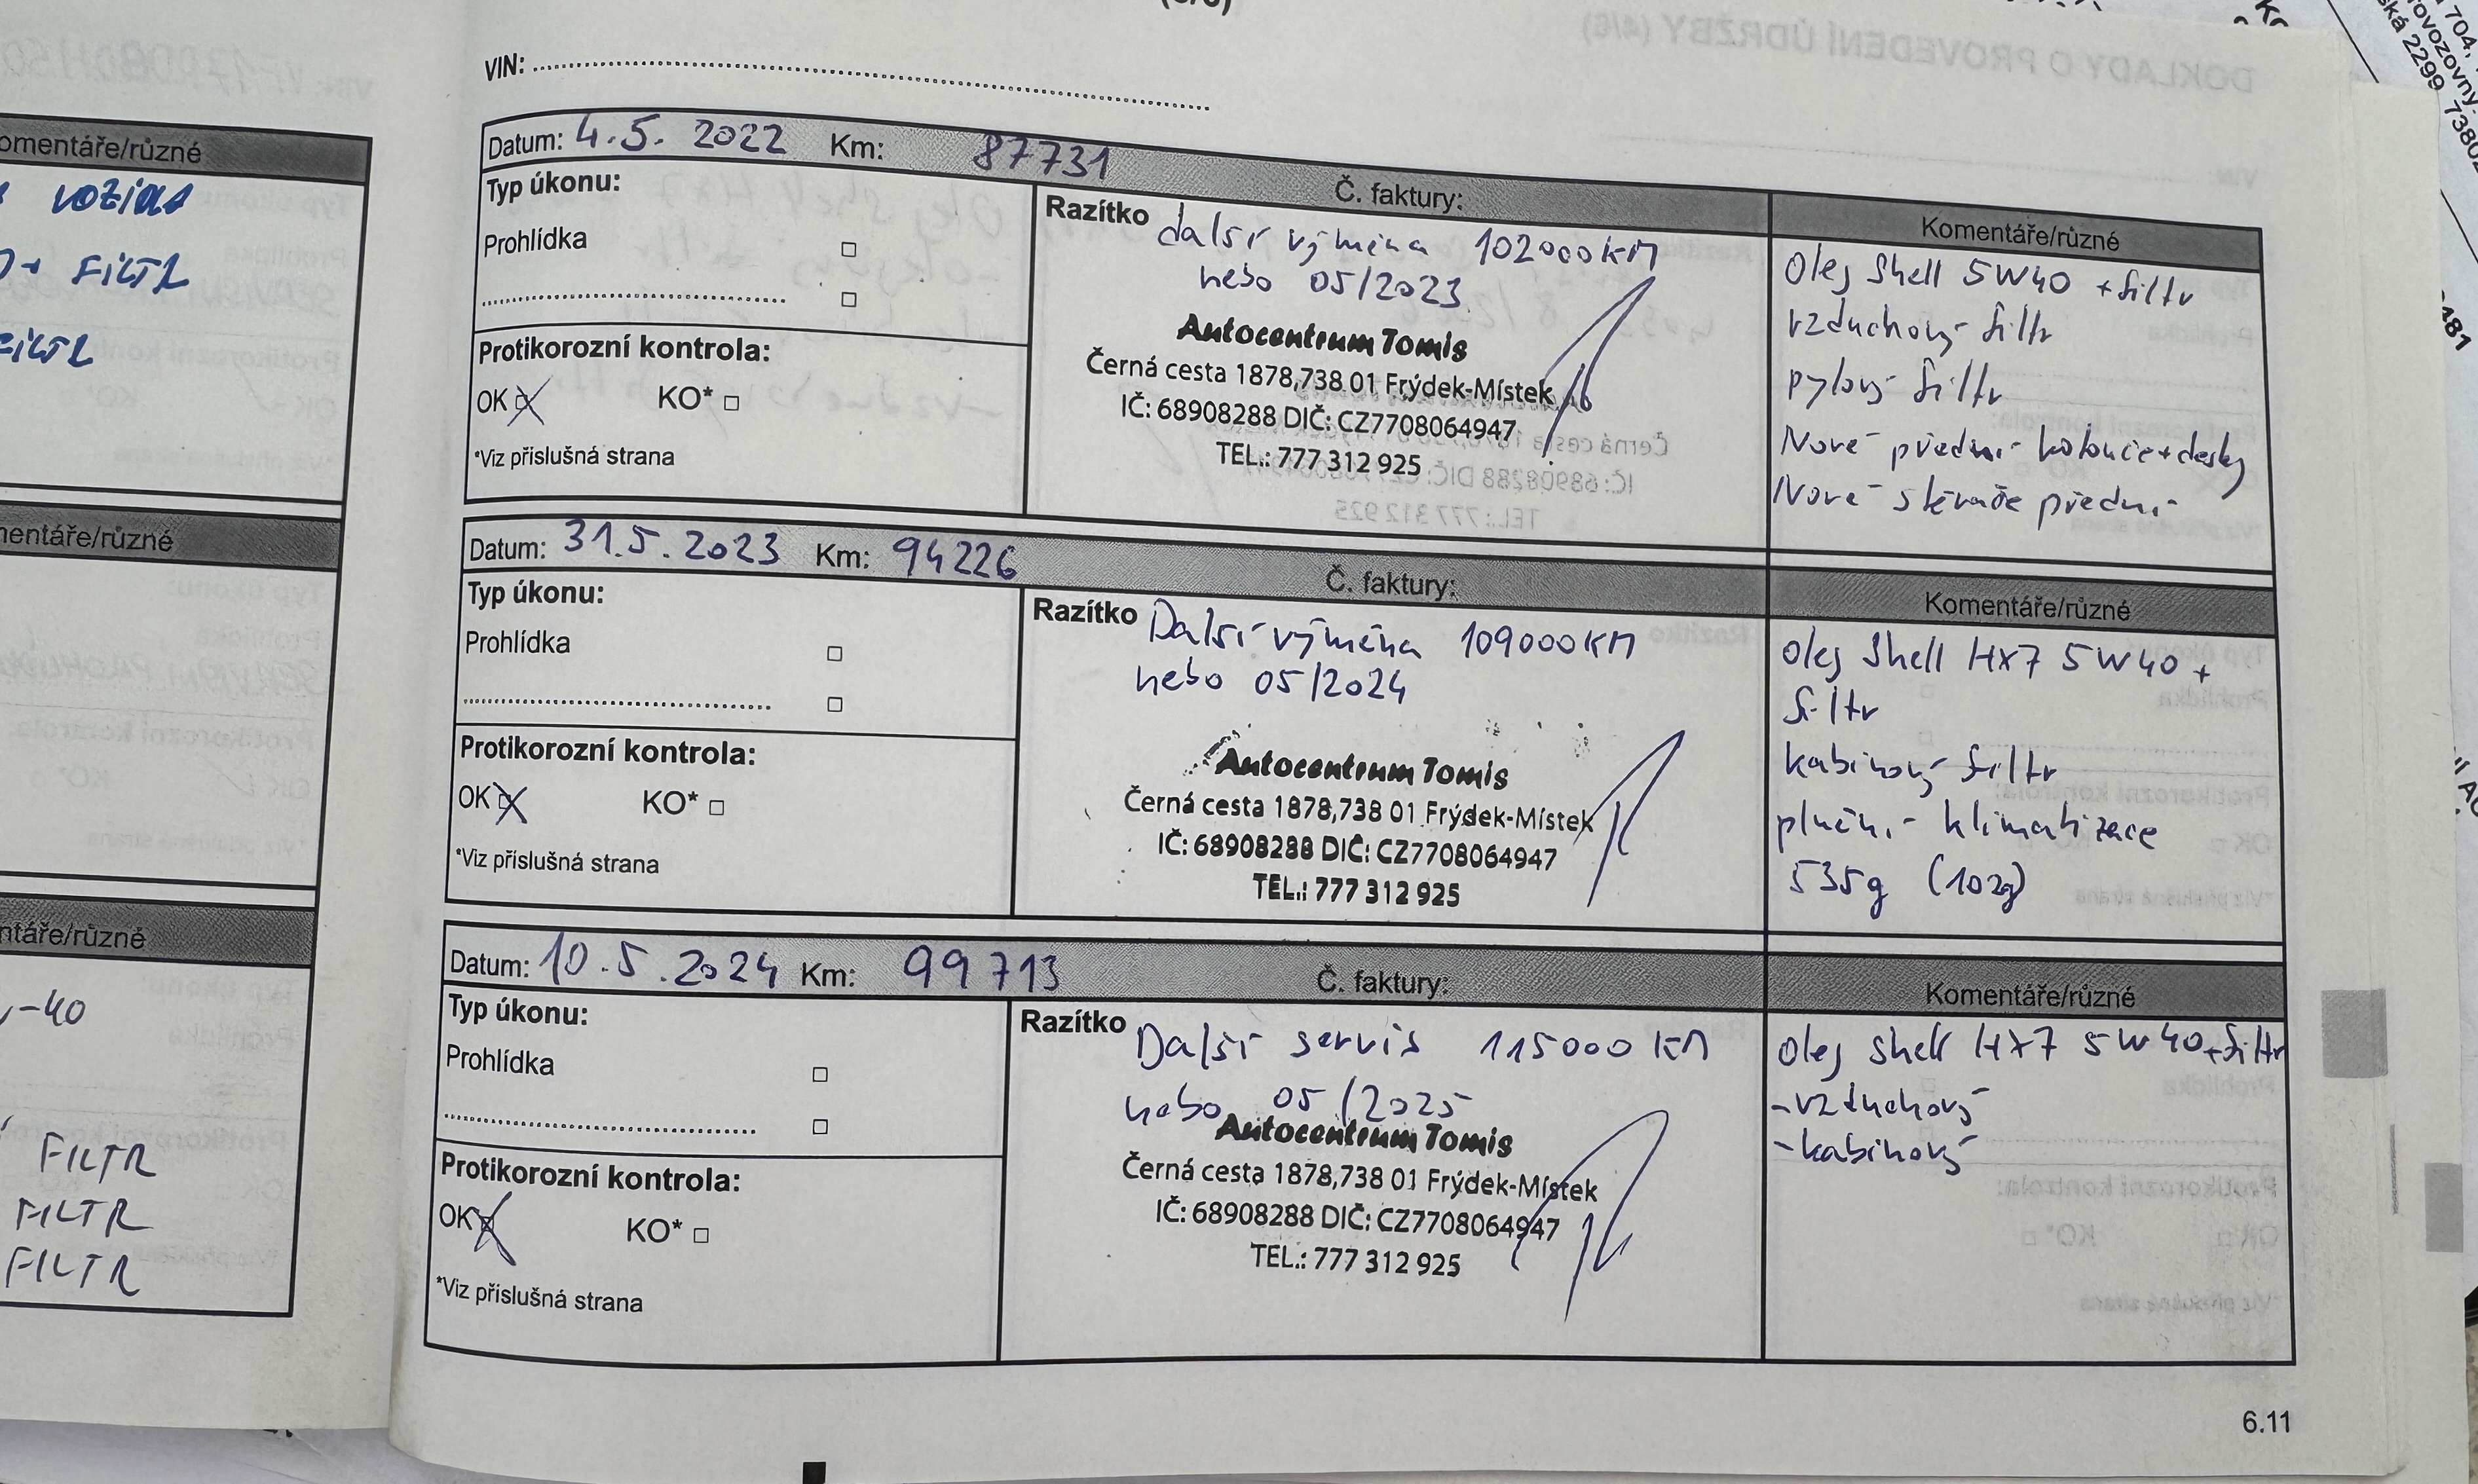 VIN:
Datum: 4.5. 2022 Km: 87731
Č. faktury:
Komentáře/různé
Typ úkonu:
Prohlídka
Protikorozní kontrola:
OK KO*
*Viz příslušná strana
Razítko další výměna 102000KM
nebo 05/2023
Autocentrum Tomis
Černá cesta 1878,738 01 Frýdek-Místek
IČ: 68908288 DIČ: CZ7708064947
TEL.: 777 312 925
Olej Shell 5W40 +filtr
vzduchový filtr
pylový filtr
Nové přední kotouče+desky
Nové stěrače přední
Datum: 31.5.2023 Km: 94226
Č. faktury:
Komentáře/různé
Typ úkonu:
Prohlídka
Protikorozní kontrola:
OK KO*
*Viz příslušná strana
Razítko Další výměna 109000KM
nebo 05/2024
Autocentrum Tomis
Černá cesta 1878,738 01 Frýdek-Místek
IČ: 68908288 DIČ: CZ7708064947
TEL.: 777 312 925
olej Shell HX7 5W40 +
filtr
kabinový filtr
plnění klimatizace
535g (102g)
Datum: 10.5.2024 Km: 99713
Č. faktury:
Komentáře/různé
Typ úkonu:
Prohlídka
Protikorozní kontrola:
OK KO*
*Viz příslušná strana
Razítko Další servis 115000 KM
nebo 05/2025
Autocentrum Tomis
Černá cesta 1878,738 01 Frýdek-Místek
IČ: 68908288 DIČ: CZ7708064947
TEL.: 777 312 925
olej shell HX7 5W40+filtr
-vzduchový
-kabinový
6.11
omentáře/různé
vozidla
+ FILTR
mentáře/různé
ntáře/různé
-40
FILTR
FILTR
FILTR